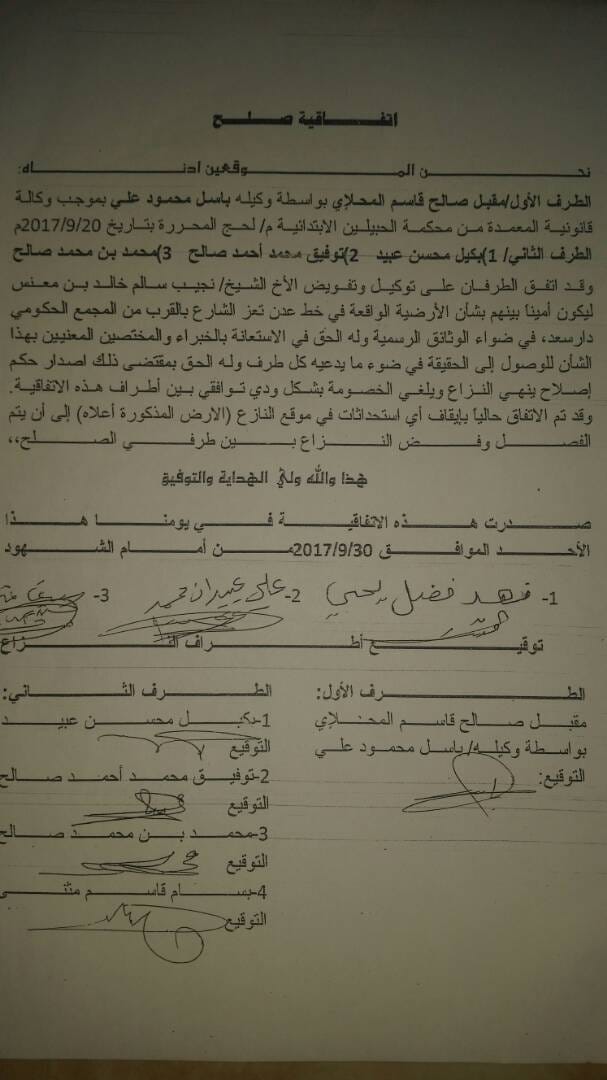 اتفاقية صلح
نحن الموقعين ادناه:
الطرف الأول/مقبل صالح قاسم المحلاي بواسطة وكيله باسل محمود علي بموجب وكالة
قانونية المعمدة من محكمة الحبيلين الابتدائية م/ لحج المحررة بتاريخ 2017/9/20م
الطرف الثاني/ 1)بكيل محسن عبيد 2)توفيق محمد أحمد صالح 3)محمد بن محمد صالح
وقد اتفق الطرفان على توكيل وتفويض الأخ الشيخ/ نجيب سالم خالد بن معنس
ليكون أميناً بينهم بشأن الأرضية الواقعة في خط عدن تعز الشارع بالقرب من المجمع الحكومي
دارسعد، في ضواء الوثائق الرسمية وله الحق في الاستعانة بالخبراء والمختصين المعنيين بهذا
الشأن للوصول إلى الحقيقة في ضوء ما يدعيه كل طرف وله الحق بمقتضى ذلك اصدار حكم
إصلاح ينهي النزاع ويلغي الخصومة بشكل ودي توافقي بين أطراف هذه الاتفاقية.
وقد تم الاتفاق حالياً بإيقاف أي استحداثات في موقع النازع (الارض المذكورة أعلاه) إلى أن يتم
الفصل وفض النزاع بين طرفي الصلح،،
هذا والله ولي الهداية والتوفيق
صدرت هذه الاتفاقية في يومنا هذا
الأحد الموافق 2017/9/30من أمام الشهود
1- فهد فضل يحيى 2- علي عبيدان محمد 3-
توقيع أطراف النزاع
الطرف الأول:
مقبل صالح قاسم المحلاي
بواسطة وكيله/ باسل محمود علي
التوقيع:
الطرف الثاني:
1-بكيل محسن عبيد
التوقيع
2-توفيق محمد أحمد صالح
التوقيع
3-محمد بن محمد صالح
التوقيع
4-بسام قاسم مثنى
التوقيع